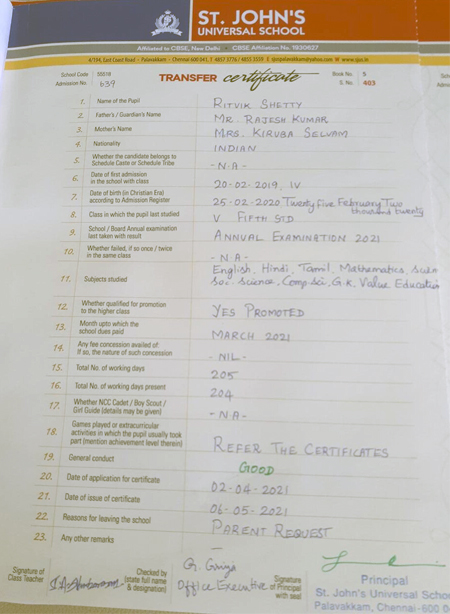 ST. JOHN'S
UNIVERSAL SCHOOL
Affiliated to CBSE, New Delhi • CBSE Affiliation No. 1930627
4/194, East Coast Road • Palavakkam • Chennai-600 041.
School Code 55518 Book No. 5
Admission No. 639 TRANSFER certificate S. No. 403
1. Name of the Pupil RITVIK SHETTY
2. Father's / Guardian's Name MR. RAJESH KUMAR
3. Mother's Name MRS. KIRUBA SELVAM
4. Nationality INDIAN
5. Whether the candidate belongs to
Schedule Caste or Schedule Tribe -N-A-
6. Date of first admission
in the school with class 20-02-2019, IV
7. Date of birth (in Christian Era)
according to Admission Register 25-02-2020 Twenty five February Two
thousand twenty
8. Class in which the pupil last studied V FIFTH STD
9. School / Board Annual examination
last taken with result ANNUAL EXAMINATION 2021
10. Whether failed, if so once / twice
in the same class -N A-
11. Subjects studied English, Hindi, Tamil, Mathematics,
Soc. Science, Comp.sci, G.K, Value Education
12. Whether qualified for promotion
to the higher class YES PROMOTED
13. Month upto which the
school dues paid MARCH 2021
14. Any fee concession availed of:
If so, the nature of such concession -NIL-
15. Total No. of working days 205
16. Total No. of working days present 204
17. Whether NCC Cadet / Boy Scout /
Girl Guide (details may be given) -NA-
18. Games played or extracurricular
activities in which the pupil usually took
part (mention achievement level therein) REFER THE CERTIFICATES
19. General conduct GOOD
20. Date of application for certificate 02-04-2021
21. Date of issue of certificate 06-05-2021
22. Reasons for leaving the school PARENT REQUEST
23. Any other remarks –
Signature of
Class Teacher
Checked by
(state full name
& designation)
Office Executive
Signature
of Principal
with seal
Principal
St. John's Universal Schoo
Palavakkam, Chennai-600 0